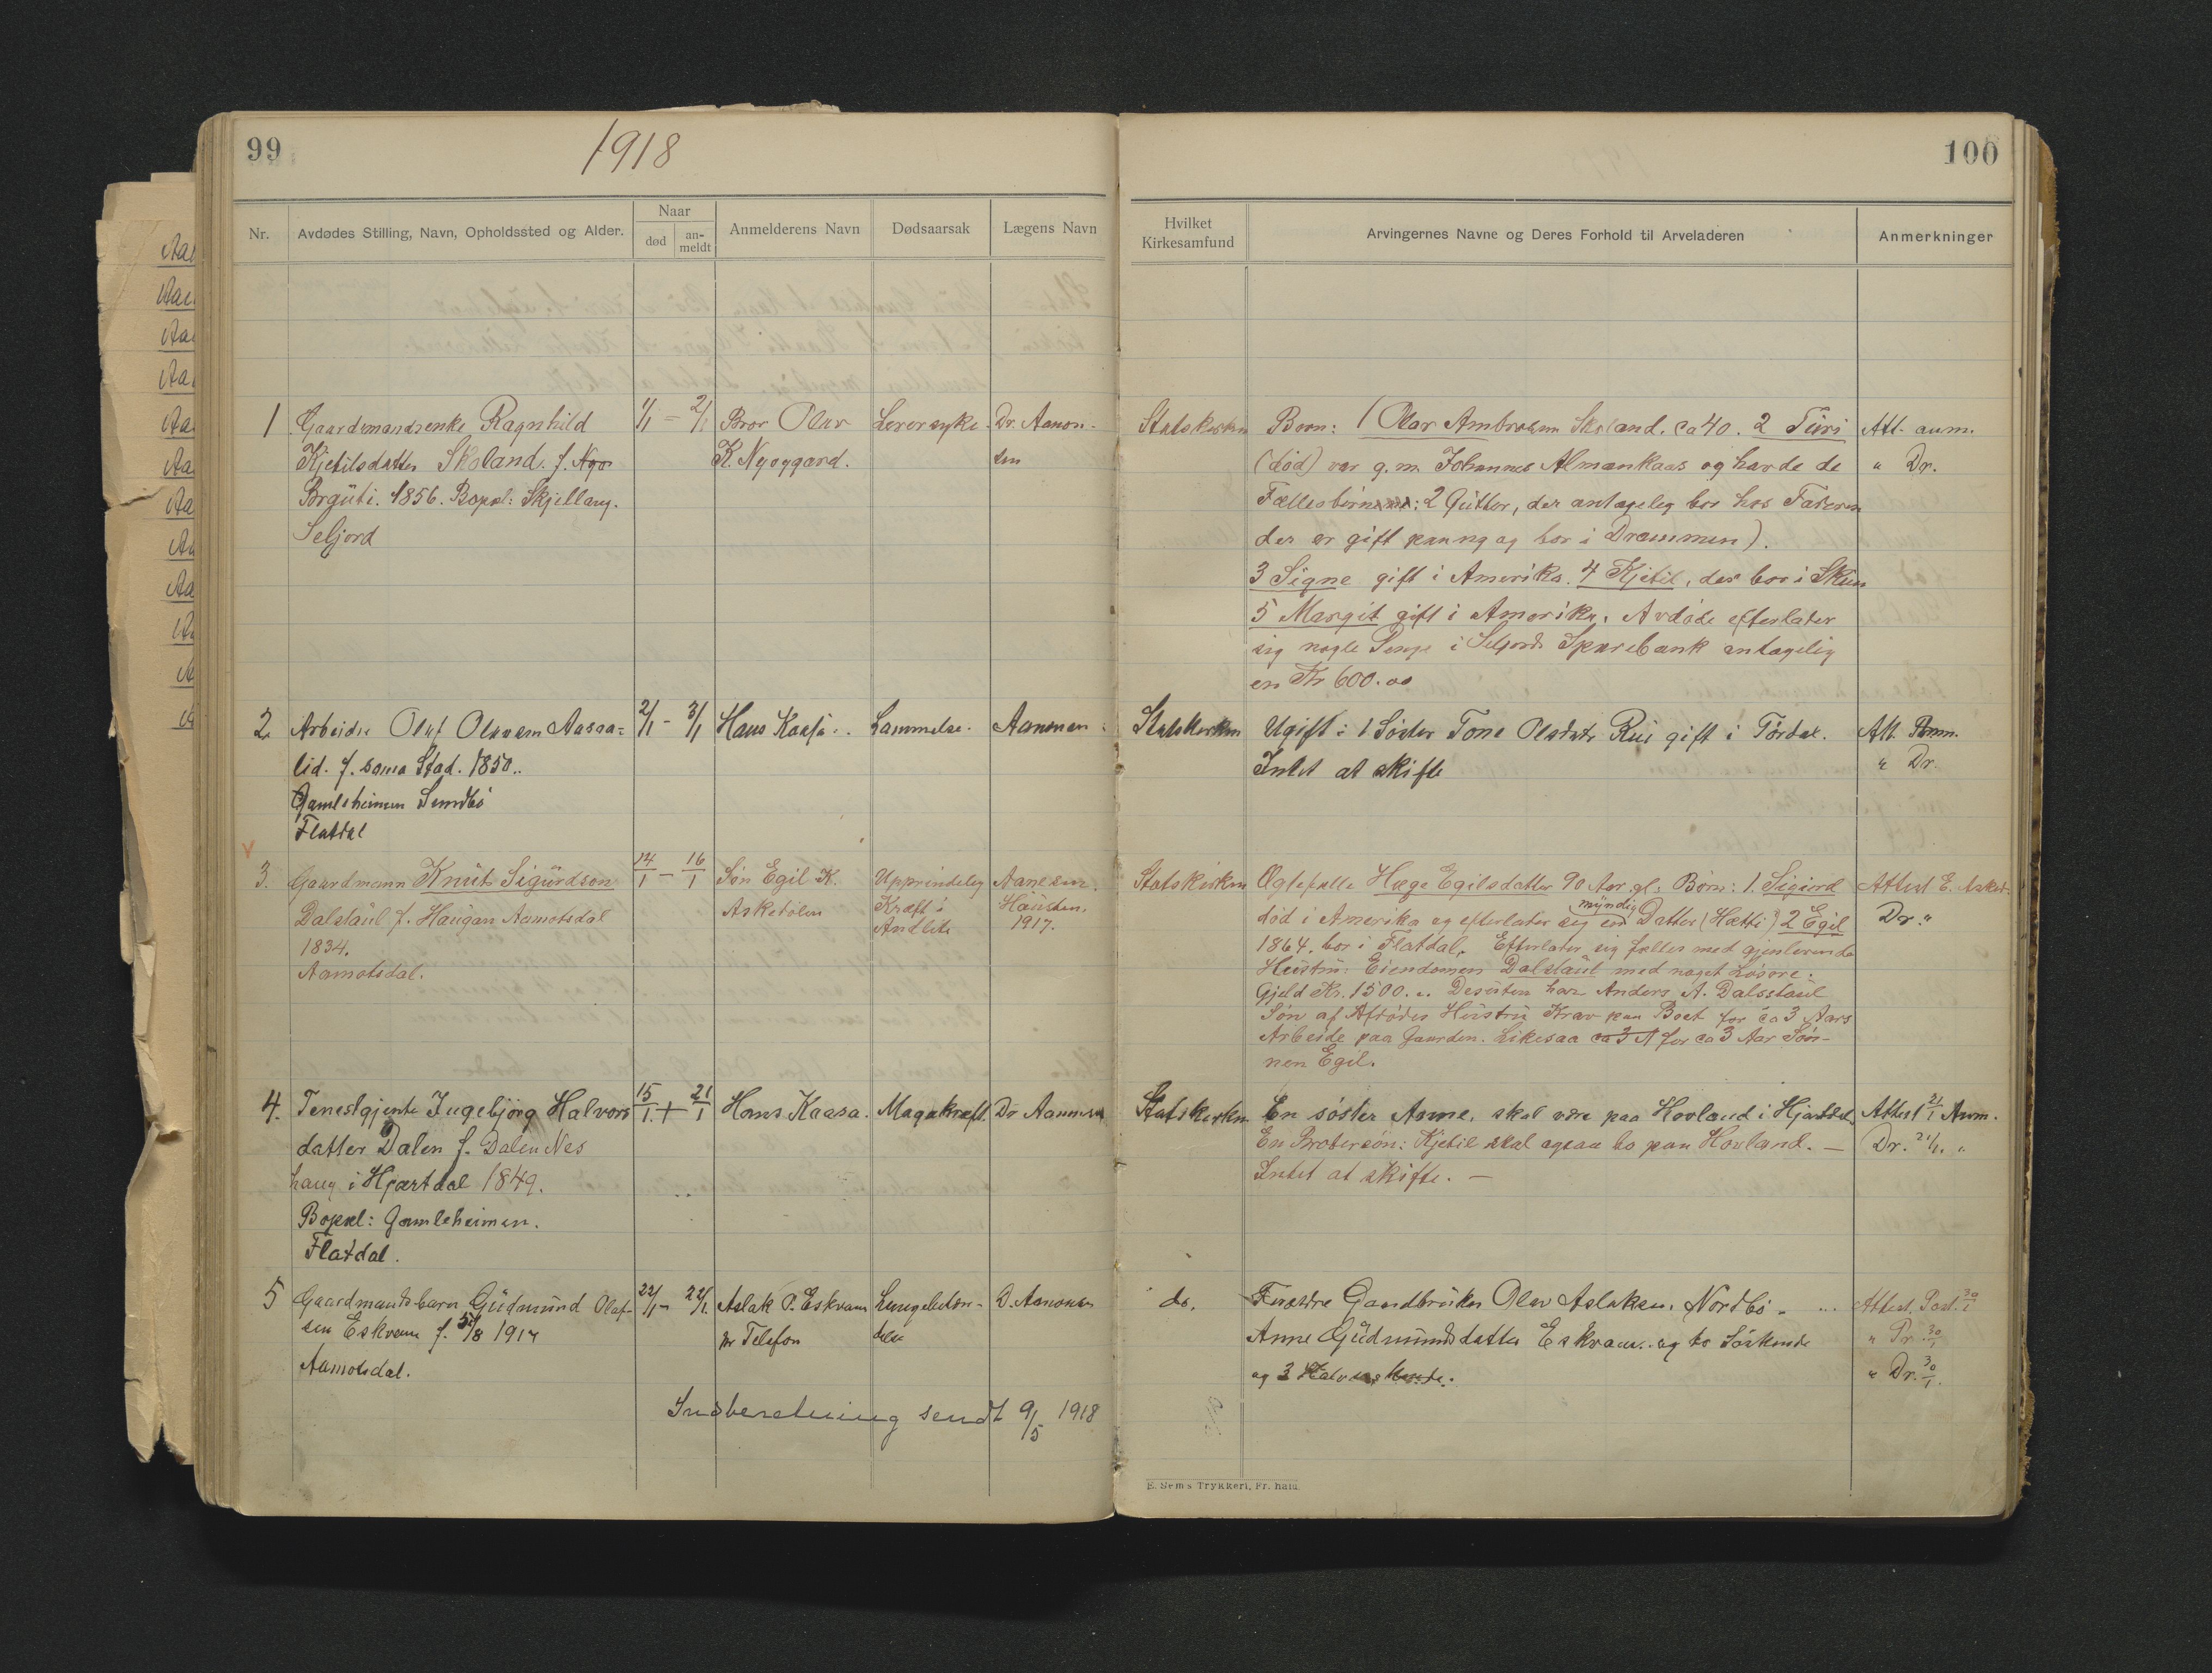 99
1918
Nr.
Avdødes Stilling, Navn, Opholdssted og Alder.
Naar
død
an-
meldt
Anmelderens Navn
Dødsaarsak
Lægens Navn
1
Gaardmandsenke Ragnhild
Kjetilsdatter Skoland. f.
1856. Bopæl:
Seljord
1/1 - 2/1
Bror Olav
K. Nygaard.
Leversyke.
Dr. Aanon-
sen
2
Arbeider Oluf Olavsen Aasaa-
lid. f. sama Stad. 1850..
Gamleheimen Sundbö
Flatdal
2/1 - 3/1
Hans Kaasa..
Lammelse.
Aanonsen
3.
Gaardmann Knut Sigurdson
Dalstaul f. Haugan Aamotsdal
1834.
Aamotsdal.
14/1 - 16/1
Søn Egil K.
Upprindeleg
Kræft i
Andlete
Aanesen.
Hausten.
1917.
4.
Tenestgjente Ingebjörg Halvors
datter Dalen f. Dalen Nes
haug i Hjartdal 1849.
Bopæl: Gamleheimen.
Flatdal.
15/1 + 21/1
Hans Kaasa.
Magakræft.
Dr Aanonsen
5
Gaardmandsbarn Gudmund Olaf-
sen Eskvam f. /8 1917
Aamotsdal.
22/1 - 22/1.
Aslak O. Eskvam
pr Telefon
D. Aanonsen
Indberetning sendt 9/5 1918
100
Hvilket
Kirkesamfund
Arvingernes Navne og Deres Forhold til Arveladeren
Anmerkninger
Statskirken
Born: 1 Olav Ambrosen Skoland. ca 40. 2 Turi
(död) var g.m. Johannes Almankaas og havde de
Fællesbörn: 2 Gutter, der antagelig bor hos Faderen
der er gift paa ny og bor i Drammen).
3 Signe gift i Amerika. 4 Kjetil, der bor i Skien
5 Margit gift i Amerika. Avdöde efterlater
sig nogle Penge i Seljords Sparebank antagelig
en Kr 600.00
Att. anm.
" Dr.
Statskirken
Ugift: 1 Söster Tone Olsdatr Rui gift i Tørdal.
Intet at skifte
Att. Anm.
" Dr.
Statskirken
Ægtefælle Hæge Egilsdatter 70 Aar gl: Børn: 1. Sigurd
död i Amerika og efterlater sig en myndig Datter (Hætti) 2 Egil
1864. bor i Flatdal. Efterlater sig fælles med gjenlevende
Hustru: Eiendomen Dalstaul med noget Lösöre.
Gjeld Kr. 1500. Desuten har Anders A. Dalsstaul
Søn af Afdödes Hustru Krav paa Boet for ca 3 Aars
Arbeide paa Gaarden. Likesaa ca 3 A for ca 3 Aar Søn-
nen Egil.
Attest E.
Dr. "
Statskirken
En söster Anne, skal være paa Hovland i Hjartdal
En Brodersön: Kjetil skal ogsaa bo paa Hovland. —
Intet at skifte. —
Attest 21/1 Anm.
Dr. 21/1. "
do.
Forældre Gaardbruker Olav Aslaksen Nordbö -
Anne Gudmundsdatter Eskvam. og to Söskende
og 3 Halvsöskende.
Attest. 30/1
" Pr. 30/1
" Dr. 30/1.
E. Sem's Trykkeri, Fr. hald